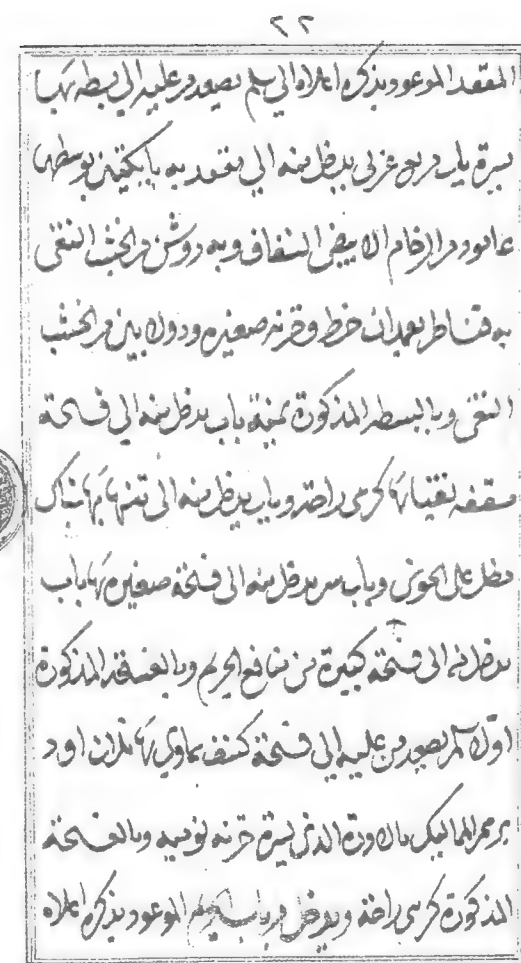 ٢٢
المقعد الموعود بذكره اعلاه الى سلم يصعد من عليه الى بسطه بها
يسرة باب مربع عربى يدخل منه الى مقعد به بايكتين بوسطهما
عامود من الرخام الابيض الشفاف وبه روشن من الخشب النقى
به قناطر بعمدان خرط وخزنه صغيره ودولابين من الخشب
النقى وبالبسطه المذكورة يمنة باب يدخل منه الى فسحة
مسقفه نقيا بها كرسى راحة وباب يدخل منه الى تنهه بها شباك
مطل على الحوش وباب سر يدخل منه الى فسحة صغيره بها باب
يدخل منه الى فسحة كبيرة من منافع الحريم وبالفسقه المذكورة
اولا سلم يصعد من عليه الى فسحة كشف سماوى بها ثلاث اود
برسم المماليك بالاودة الذى يسرة خزنه نوميه وبالفسحة
المذكورة كرسى راحة ويدخل من باب الحريم الموعود بذكره اعلاه